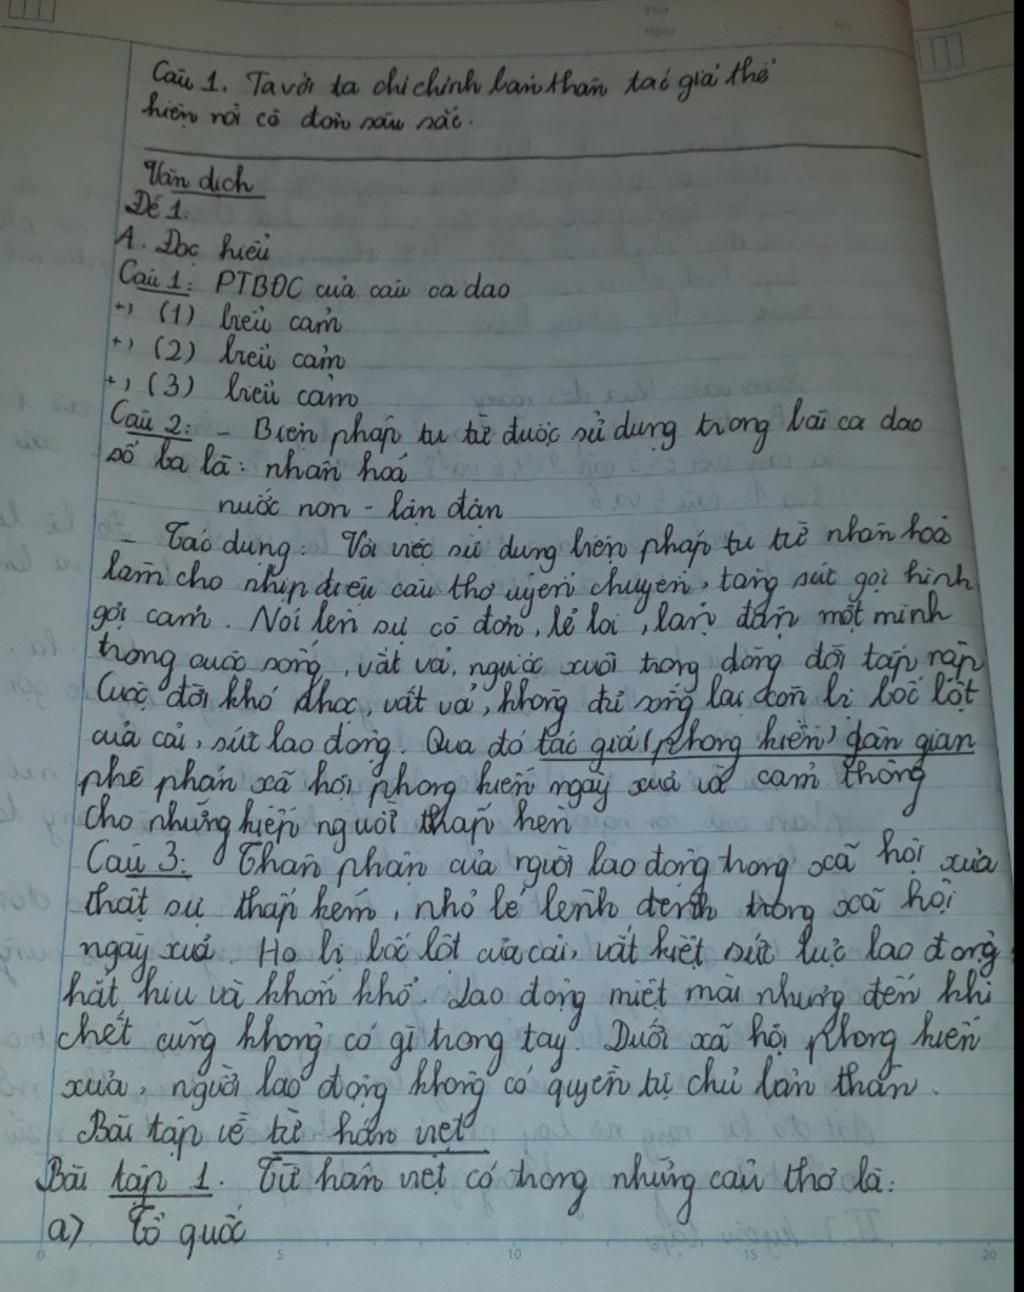 Thứ
Ngày
No
Câu 1. Ta với ta chỉ chính bản thân tác giả thể
hiện nỗi cô đơn sâu sắc.
Văn dịch
Đề 1:
A. Đọc hiểu
Câu 1: PTBĐC của câu ca dao
+) (1) biểu cảm
+) (2) biểu cảm
+) (3) biểu cảm
Câu 2: - Biện pháp tu từ được sử dụng trong bài ca dao
số ba là: nhân hoá
nước non - lận đận
- Tác dụng: Với việc sử dụng biện pháp tu từ nhân hoá
làm cho nhịp điệu câu thơ uyển chuyển, tăng sức gợi hình
gợi cảm. Nói lên sự cô đơn, lẻ loi, lận đận một mình
trong cuộc sống, vất vả, ngược xuôi trong dòng đời tấp nập
Cuộc đời khó nhọc, vất vả, không đủ sống lại còn bị bóc lột
của cải, sức lao động. Qua đó tác giả (phong kiến) dân gian
phê phán xã hội phong kiến ngày xưa và cảm thông
cho những kiếp người thấp hèn
Câu 3: Thân phận của người lao động trong xã hội xưa
thật sự thấp kém, nhỏ lẻ lênh đênh trong xã hội
ngày xưa. Họ bị bóc lột của cải, vắt kiệt sức lực lao động
hắt hiu và khốn khổ. Lao động miệt mài nhưng đến khi
chết cũng không có gì trong tay. Dưới xã hội phong kiến
xưa, người lao động không có quyền tự chủ bản thân.
Bài tập về từ hán việt
Bài tập 1. Từ hán việt có trong những câu thơ là:
a) Tổ quốc
0 5 10 15 20